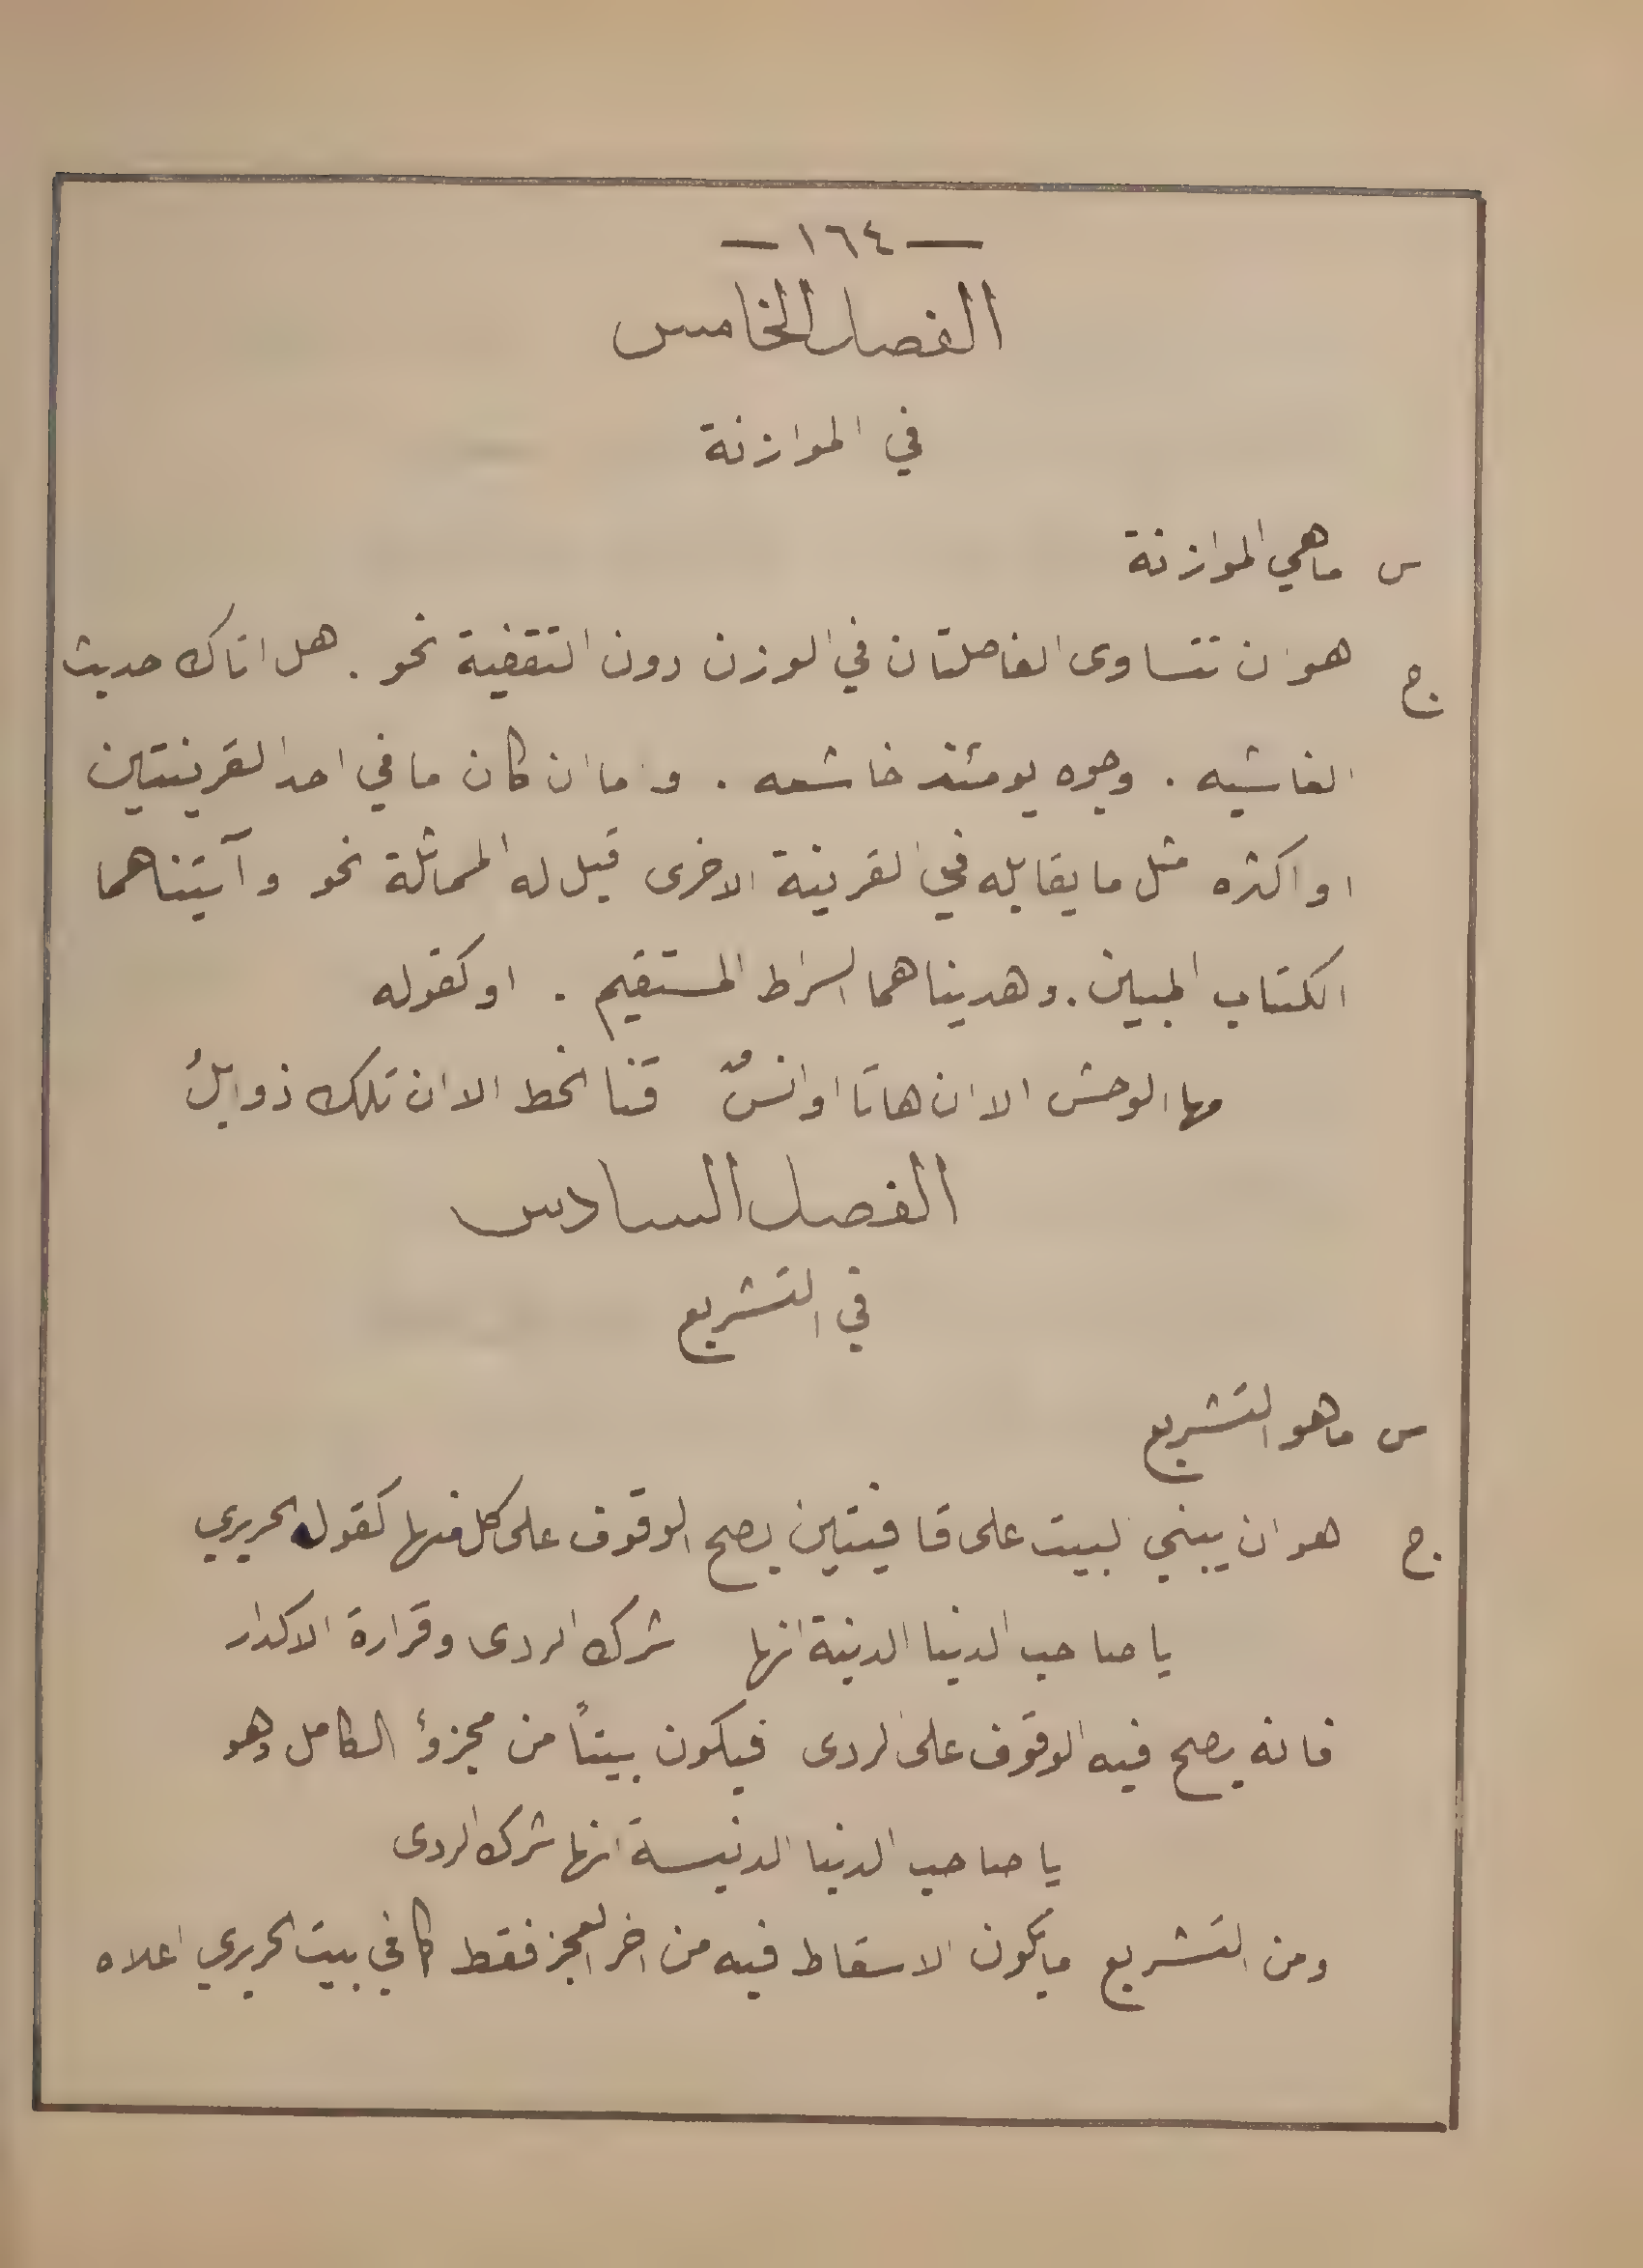 — ١٦٤ —
الفصل الخامس
في الموازنة
س ماهي الموازنة
ج هو ان تتساوى الفاصلتان في الوزن دون التقفية نحو . هل اتاك حديث
الغاشيه . وجوه يومئذ خاشعه . و اما ان كان ما في احد القرينتين
او اكثره مثل ما يقابله في القرينة الاخرى قيل له المماثلة نحو وآتيناهما
الكتاب المبين . وهديناهما السراط المستقيم . او كقوله
مها الوحش الا ان هاتا اوانسٌ قنا الخط الا ان تلك ذوابلُ
الفصل السادس
في التشريع
س ماهو التشريع
ج هو ان يبني البيت على قافيتين يصح الوقوف على كل منها كقول الحريري
يا صاحب الدنيا الدنية انها شرك الردى وقرارة الاكدار
فانه يصح فيه الوقوف على الردى فيكون بيتاً من مجزؤ الكامل وهو
يا صاحب الدنيا الدنيـة انها شرك الردى
ومن التشريع ما يكون الاسقاط فيه من اخر العجز فقط كما في بيت الحريري اعلاه